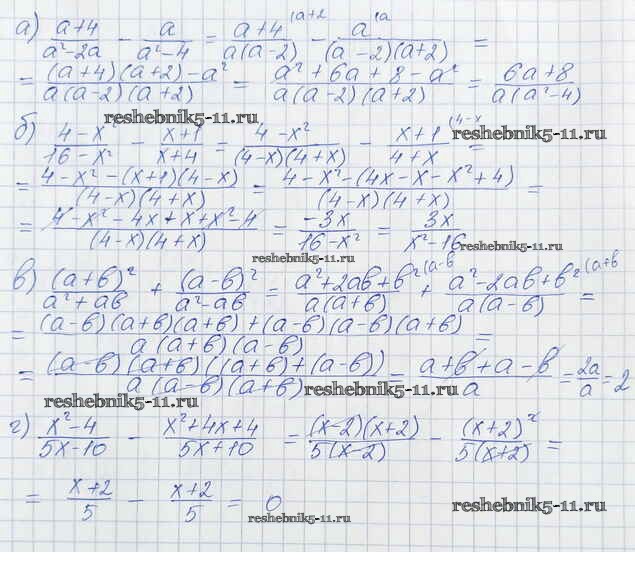 а) (a+4)/(a²-2a) - a/(a²-4) = (a+4)/(a(a-2)) (a+2 - a/((a-2)(a+2)) (a =
= ((a+4)(a+2)-a²)/(a(a-2)(a+2)) = (a²+6a+8-a²)/(a(a-2)(a+2)) = (6a+8)/(a(a²-4))
reshebnik5-11.ru
б) (4-x²)/(16-x²) - (x+1)/(x+4) = (4-x²)/((4-x)(4+x)) - (x+1)/(4+x) (4-x =
reshebnik5-11.ru
= (4-x²-(x+1)(4-x))/((4-x)(4+x)) = (4-x²-(4x-x-x²+4))/((4-x)(4+x)) =
= (4-x²-4x+x+x²-4)/((4-x)(4+x)) = (-3x)/(16-x²) = 3x/(x²-16)
reshebnik5-11.ru
reshebnik5-11.ru
в) (a+b)²/(a²+ab) + (a-b)²/(a²-ab) = (a²+2ab+b²)/(a(a+b)) (a-b + (a²-2ab+b²)/(a(a-b)) (a+b =
= ((a-b)(a+b)(a+b)+(a-b)(a-b)(a+b))/(a(a+b)(a-b)) =
= ((a-b)(a+b)((a+b)+(a-b)))/(a(a-b)(a+b)) = (a+b+a-b)/a = 2a/a = 2
reshebnik5-11.ru
reshebnik5-11.ru
г) (x²-4)/(5x-10) - (x²+4x+4)/(5x+10) = ((x-2)(x+2))/(5(x-2)) - (x+2)²/(5(x+2)) =
= (x+2)/5 - (x+2)/5 = 0
reshebnik5-11.ru
reshebnik5-11.ru